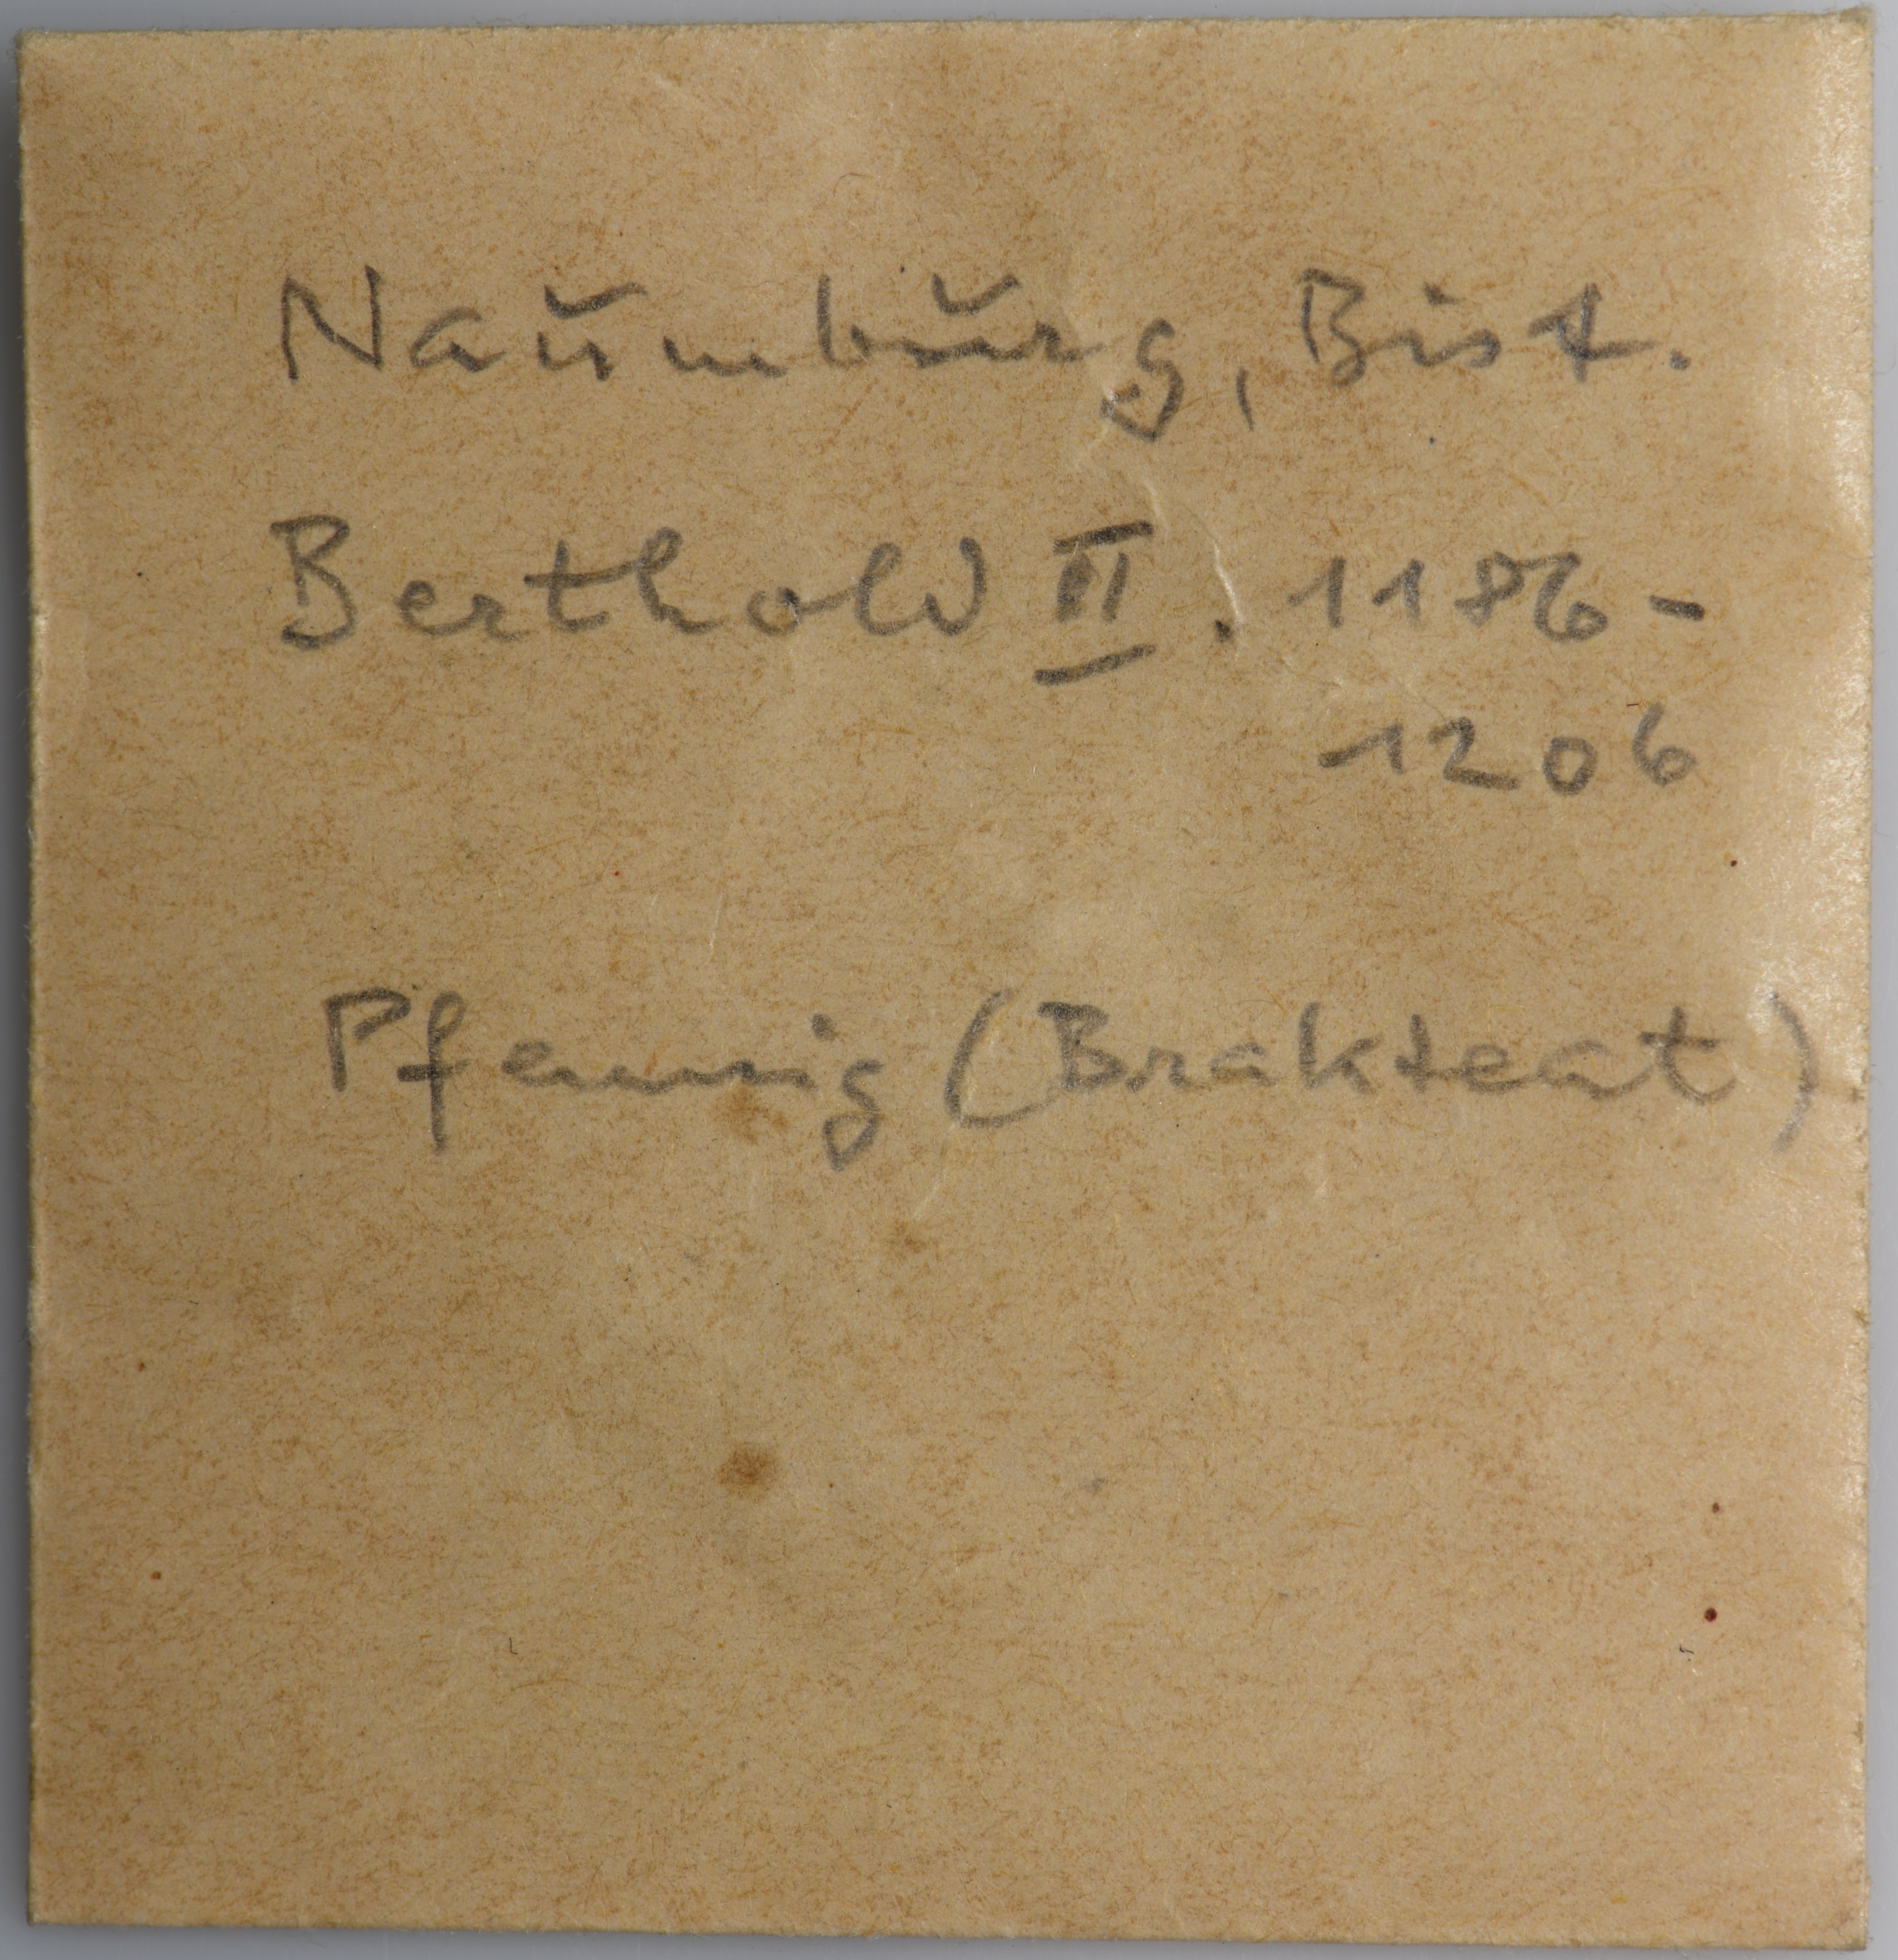 Naumburg, Bist.
Berthold II. 1186-
1206
Pfennig (Brakteat)